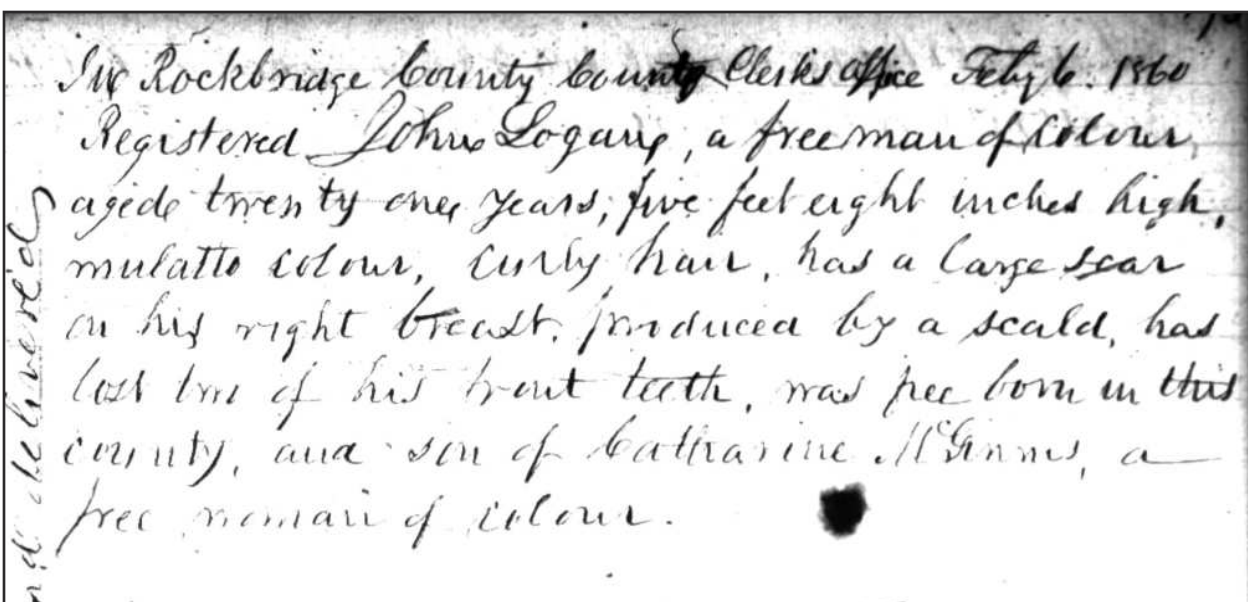 In Rockbridge County County Clerks office Feby 6. 1860
Registered John Logan, a free man of colour,
aged twenty one years, five feet eight inches high,
mulatto colour, curly hair, has a large scar
on his right breast, produced by a scald, has
lost two of his front teeth, was free born in this
county, and son of Catharine McGinnis, a
free woman of colour.
nd delivered